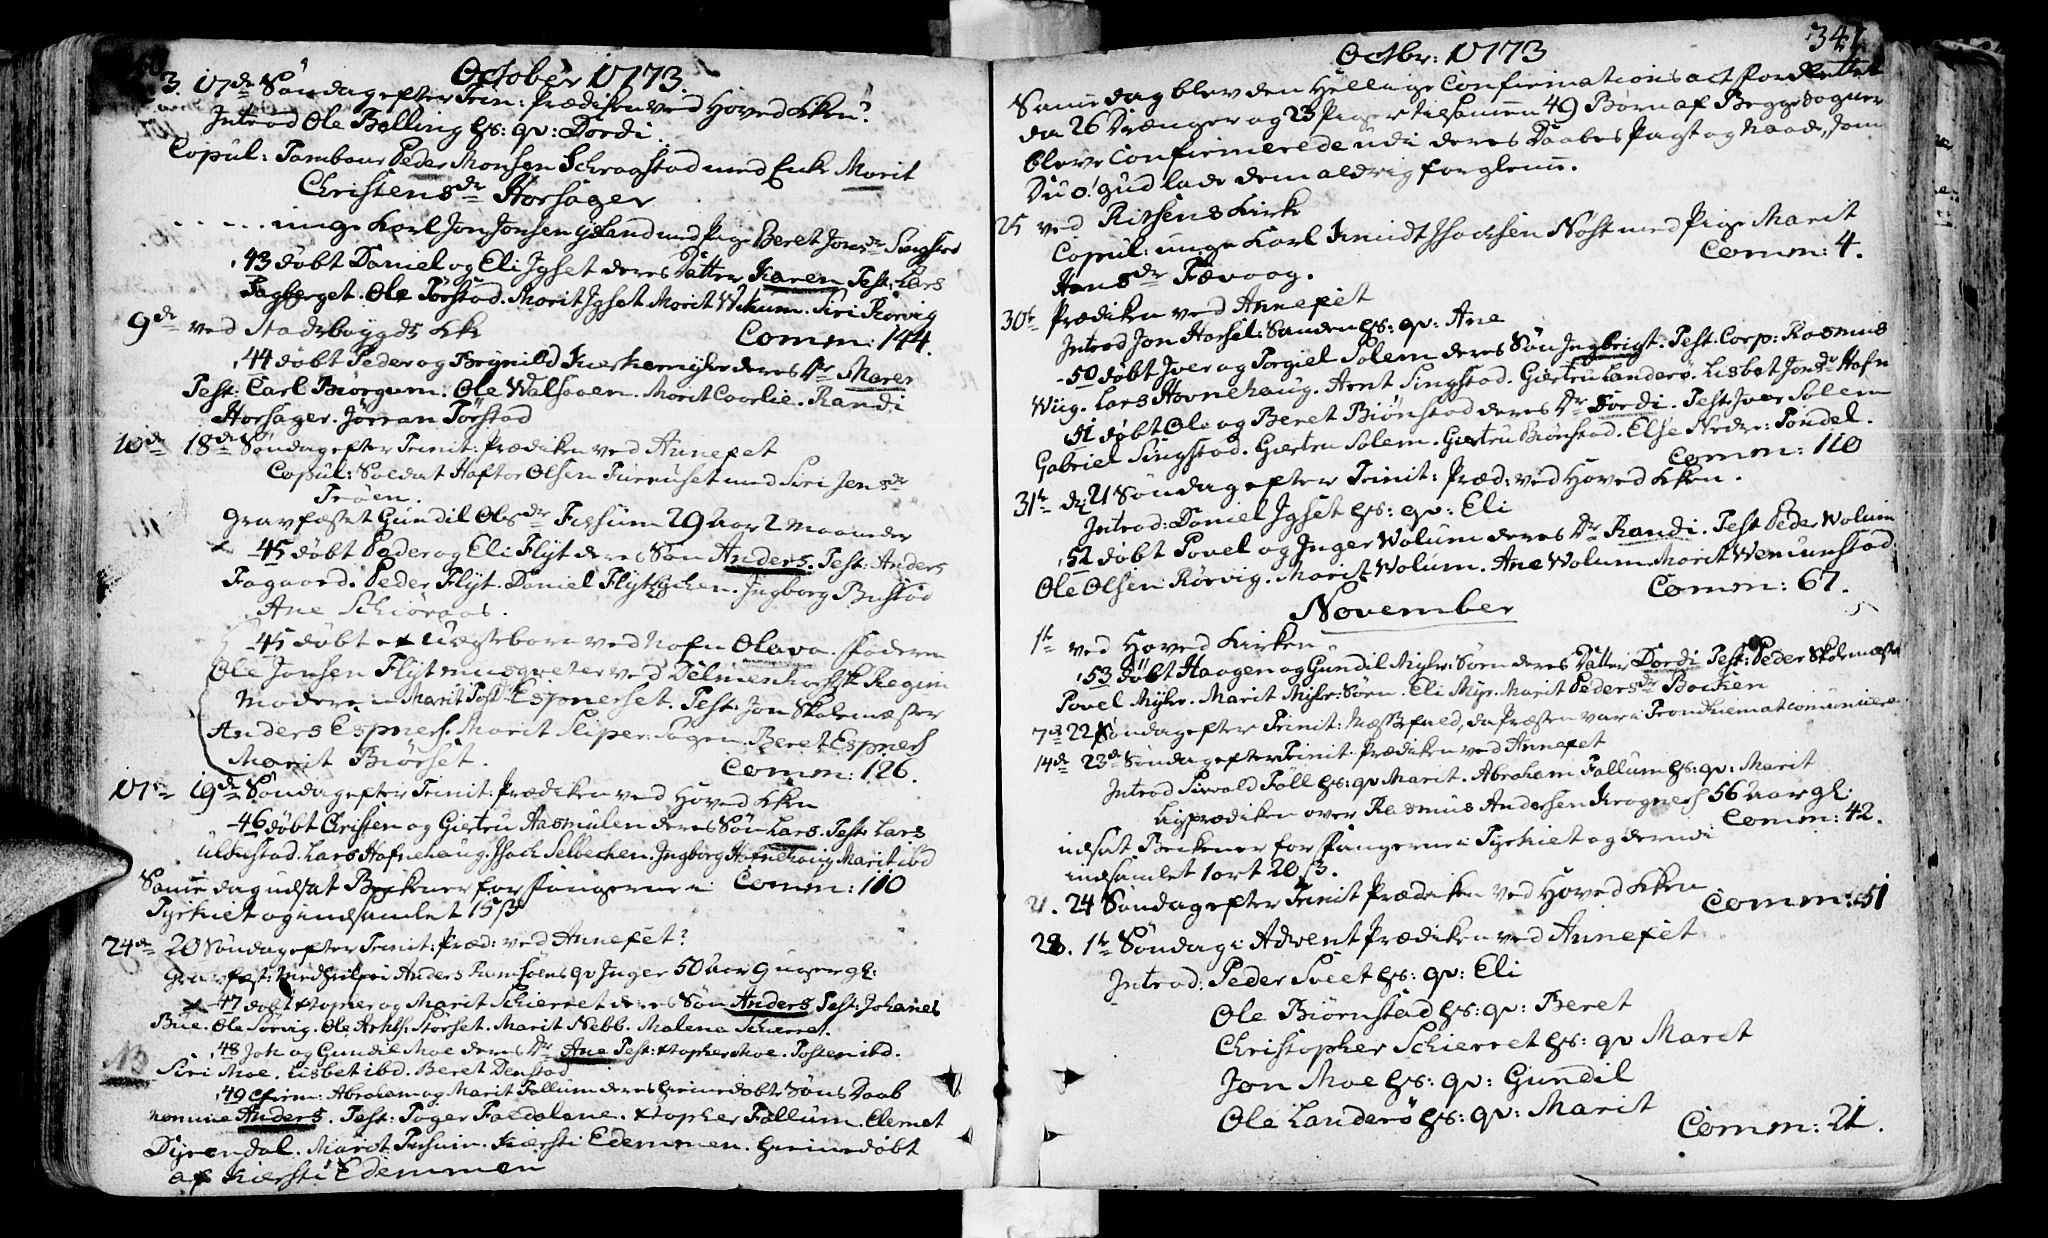 October 1773.
3. 17de Søndag efter Trin: Prædiken ved Hoved Kken
Introd Ole Balling hs: qv: Dordi
Copul: Tambour Peder Monsen Schrogstad med Enke Marit
Christensdr Horsager
unge Karl Jon Jonsen Øeland med Pige Beret Jonsdr Singstad
43 døbt Daniel og Eli Igset deres Datter Karen Test: Lars
Fagberget. Ole Torstad. Marit Igset. Marit Wikum. Siri Rørvig
9de ved Stadsboygds Kke Comm: 144.
44 døbt Peder og Brynild Kierkemyhr deres Dr Maren
Test: Carl Børgum. Ole Walsoen. Marit Coorlie. Randi
Horsager. Jørran Torstad
10de 18de Søndag efter Trinit: Prædiken ved Annexet
Copul: Soldat Haftor Olsen Furruset med Siri Jensdr
Troen.
Gravfæstet Gundil Olsdr Fissum 29 Aar 2 Maaneder
45 døbt Peder og Eli Flyt deres Søn Anders. Test: Anders
Fagaard. Peder Flyt. Daniel Flythychen. Ingborg Bustad
Ane Schiøraas.
45 døbt et uægte barn ved Nafn Olava. Faderen
Ole Jonsen Flyt musqueter ved Delmenhorstske Regim
Moderen Marit Espnerset. Test: Jon Skolemæster
Anders Espners. Marit Sliper. Beret Espners
Marit Biørset. Comm: 126.
17de 19de Søndag efter Trinit: Prædiken ved Hoved Kken
46 døbt Christen og Giertru Aasmulen deres Søn Lars. Test: Lars
Ulstestad. Lars Hofnehaug. Isach Selbechen. Ingborg Hofnehaug Marit ibd
Samme dag udsat Beckener for Fangerne i Comm: 110
Tyrkiet og indsamlet 15 ß
24de 20 Søndag efter Trinit: Præd: ved Annexet
Gravfæst: Anders Ramsøens qv Inger 50 Aar 9 uger gl:
47 døbt xtopher og Marit Schierret deres Søn Anders Test: Johanes
Bue. Ole Sørvig. Ole Arnts: Storset. Marit Nebb. Malena Schierret.
NB 48 Joh og Gundil Moe deres Dr Ane Test: xtopher Moe. Tosten ibd.
Siri Moe. Lisbet ibd. Beret Denstad
49 Cfirm: Abraham og Marit Fallum deres hiemedøbt Søns Daab
nomine Anders. Test: Toger Fardalane. xtopher Fallum. Clemet
Dyrendal. Marit Kiersti Edemmen. hiemedøbt
af Kiersti Edemmen
Octbr: 1773
341
Samme dag blev den Hellige Confirmations act forrettet
da 26 Drænger og 23 Piger tilsamen 49 Børn af Begge Sogner
bleve Confirmerede udi deres Daabes Pagt og Naade, som
Du o! gud lade dem aldrig forglemme.
25 ved Ritsens Kirk
Copul: unge Karl Knudt Isachsen Nøst med Pige Marit
Hansdr Fævaag. Comm: 4.
30te Prædiken ved Annexet
Introd Jon Horsel: Sanden hs: qv: Ane
50 døbt Iver og Torgiel Solem deres Søn Ingbrigt. Test. Corp: Rasmus
Wiig. Lars Hovnehaug. Arnt Singstad. Giertru Landerø. Lisbet Jonsdr Hofn
51 døbt Ole og Beret Biørnstad deres Dr Dordi. Test: Iver Solem
Gabriel Singstad. Giertru Solem. Giertru Biørnstad. Else Nedre: Tøndel.
Comm: 110
31te d: 21 Søndag efter Trinit: Præd: ved Hoved Kken.
Introd: Daniel Igset hs: qv: Eli
52 døbt Povel og Inger Wolum deres Dr Randi. Test Peder Wolum
Ole Olsen Rørvig. Marit Wolum. Ane Wolum. Marit Wemunstad
Comm: 67.
November
1te ved Hoved Kirken
53 døbt Haagen og Gundil Myhr: Søen deres Datter Dordi Test: Peder Skolemæster
Povel Myhr. Marit Myhr: Søen. Eli Myr. Marit Pedersdr Backen
7de 22 Søndag efter Trinit: Messefald, da Præsten var i Trondhiem at comunicere
14de 23de Søndag efter Trinit: Prædiken ved Annexet
Introd Sivald Fall hs: qv Marit. Abraham Fallum hs: qv: Marit
Ligprædiken over Rasmus Andersen Krogness 56 Aar gl:
Comm: 42.
udsat Beckener for Fangerne i Tyrkiet og derudi
indsamlet 1 ort 20 ß.
21. 24 Søndag efter Trinit Prædiken ved Hoved Kken Comm: 51
28. 1te Søndag i Advent Prædiken ved Annexet
Introd: Peder Sveet hs: qv: Eli
Ole Biørnstad hs: qv: Beret
Christopher Schierret hs: qv Marit
Jon Moe hs: qv: Gundil
Ole Landerø hs: qv: Marit
Comm: 21.